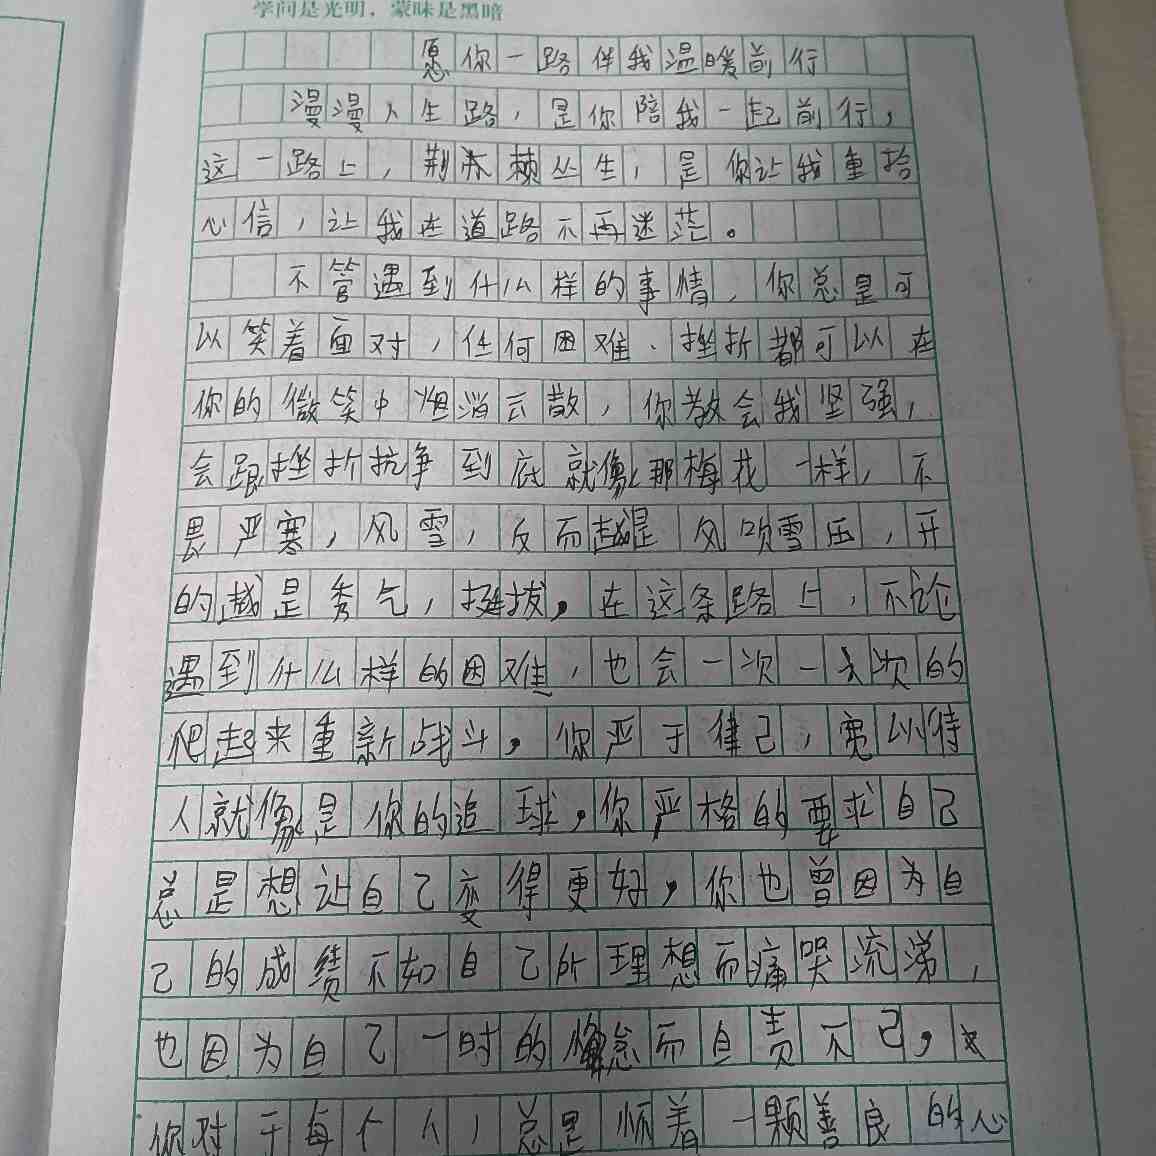 学问是光明，蒙昧是黑暗
愿你一路伴我温暖前行
漫漫人生路，是你陪我一起前行，
这一路上，荆棘丛生，是你让我重拾
心信，让我在道路不再迷茫。
不管遇到什么样的事情，你总是可
以笑着面对，任何困难、挫折都可以在
你的微笑中烟消云散，你教会我坚强，
会跟挫折抗争到底就像那梅花一样，不
畏严寒，风雪，反而越是风吹雪压，开
的越是秀气，挺拔。在这条路上，不论
遇到什么样的困难，也会一次一次的
爬起来重新战斗。你严于律己，宽以待
人就像是你的追球。你严格的要求自己
总是想让自己变得更好，你也曾因为自
己的成绩不如自己所理想而痛哭流涕，
也因为自己一时的懈怠而自责不已，
你对于每个人，总是怀着一颗善良的心